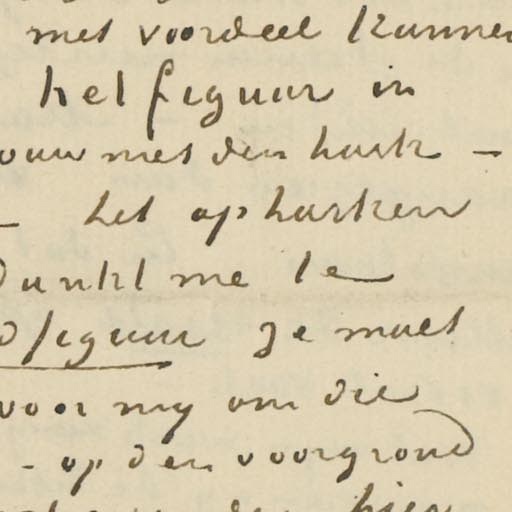 met voordeel kunnen
het figuur in
ouw met den hark –
– het opharken
dunkt me te
dfiguur Je moet
voor my om die
– op den voorgrond